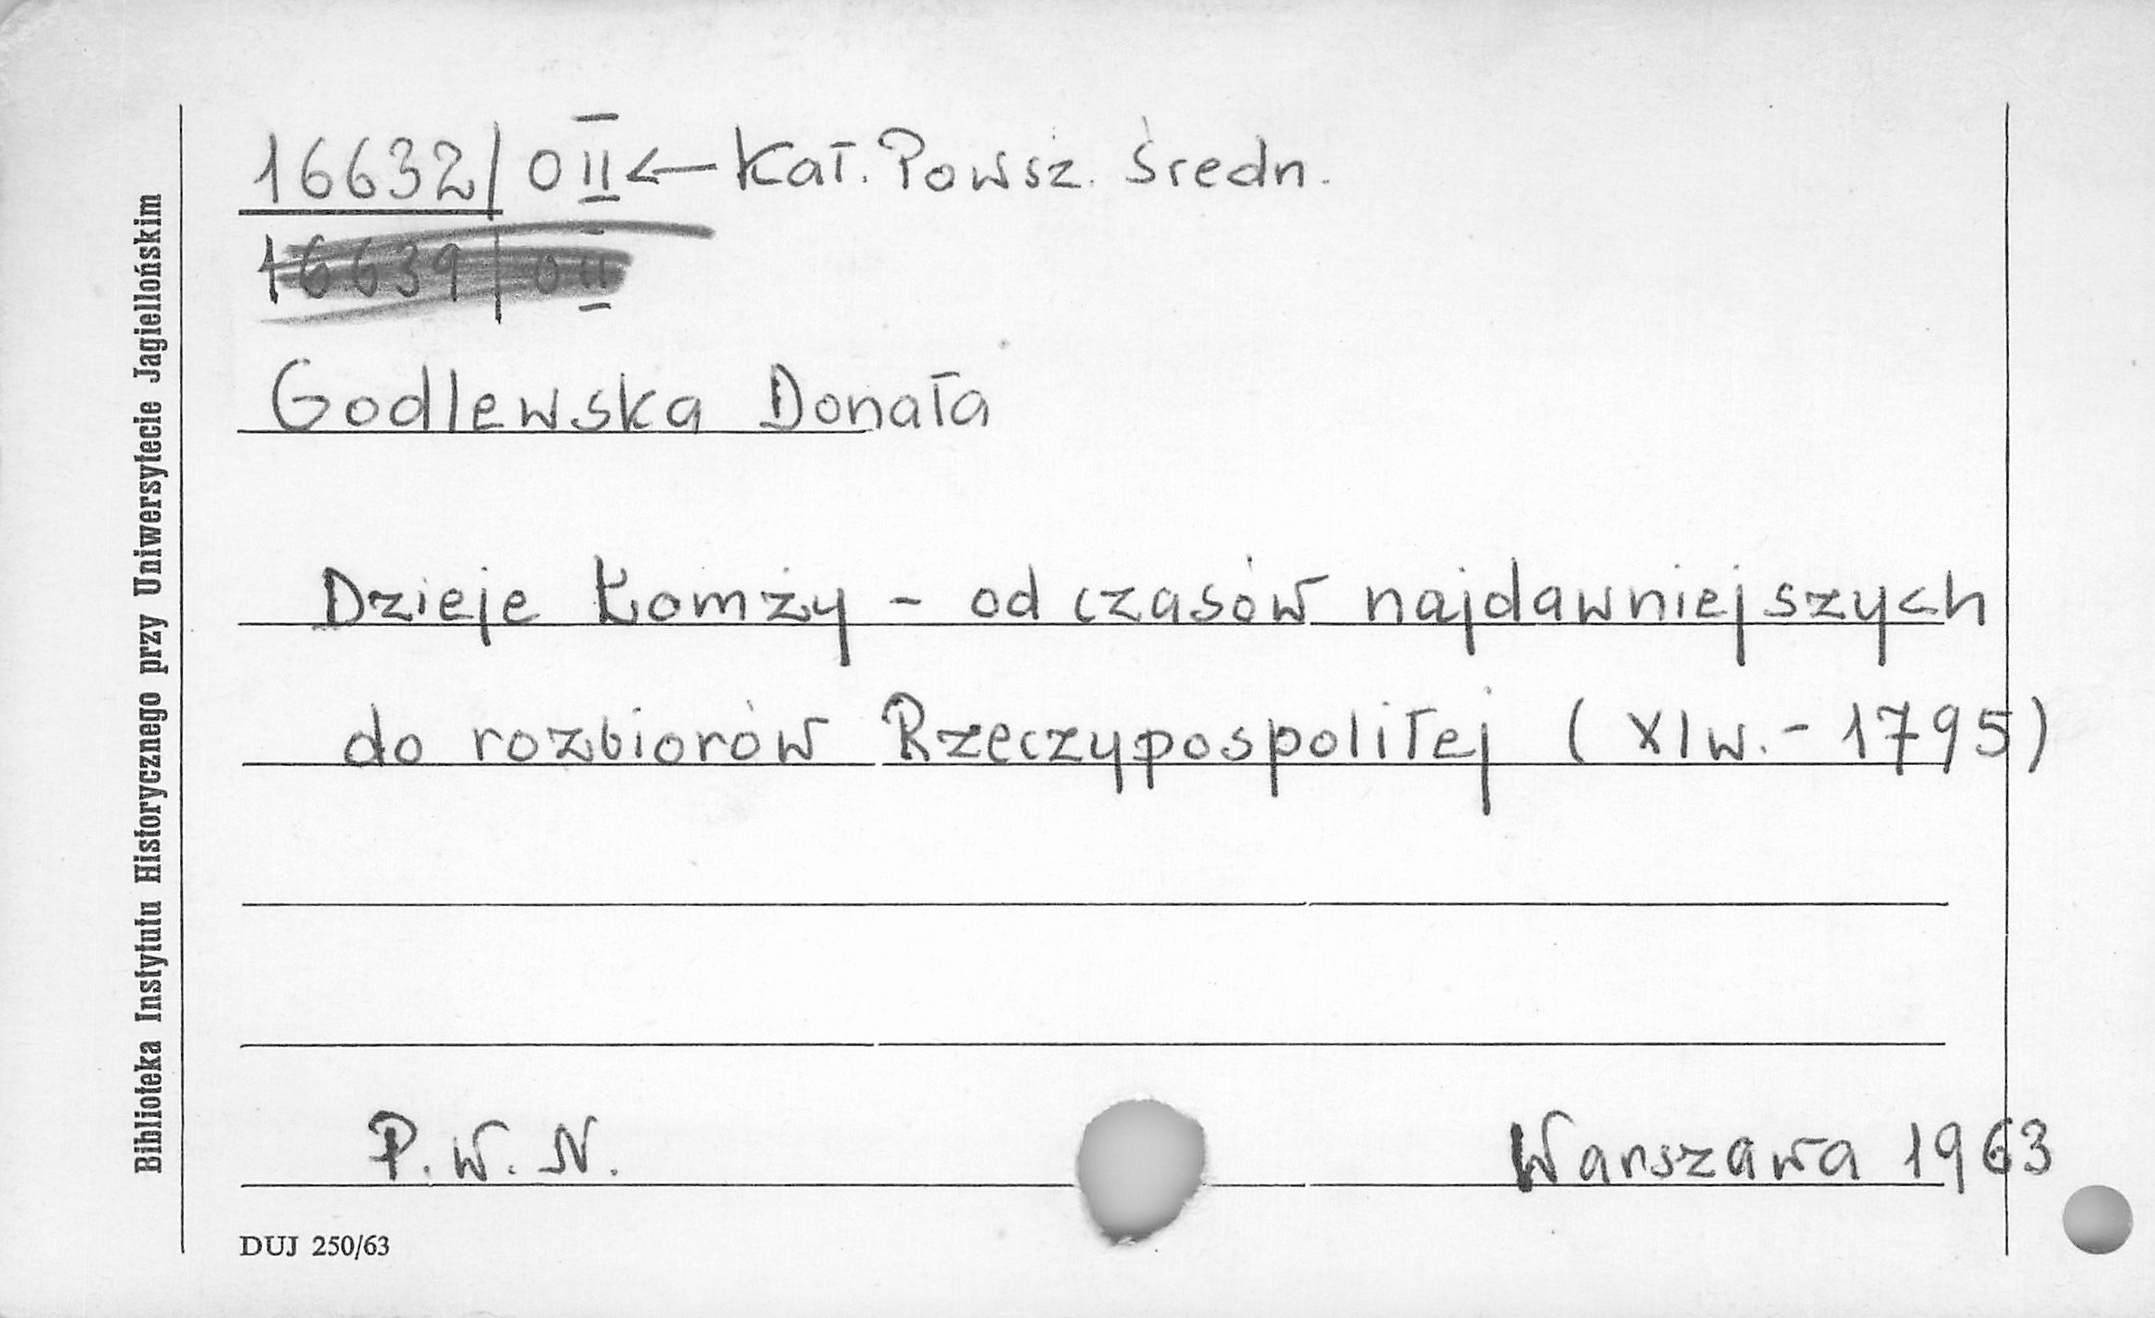 16632/ 0 II ← Kat. Powsz. Średn.
16639/ 0 II
Godlewska Donata
Dzieje Łomży - od czasów najdawniejszych
do rozbiorów Rzeczypospolitej (XI w. - 1795)
P. W. N. Warszawa 1963
DUJ 250/63
Biblioteka Instytutu Historycznego przy Uniwersytecie Jagiellońskim